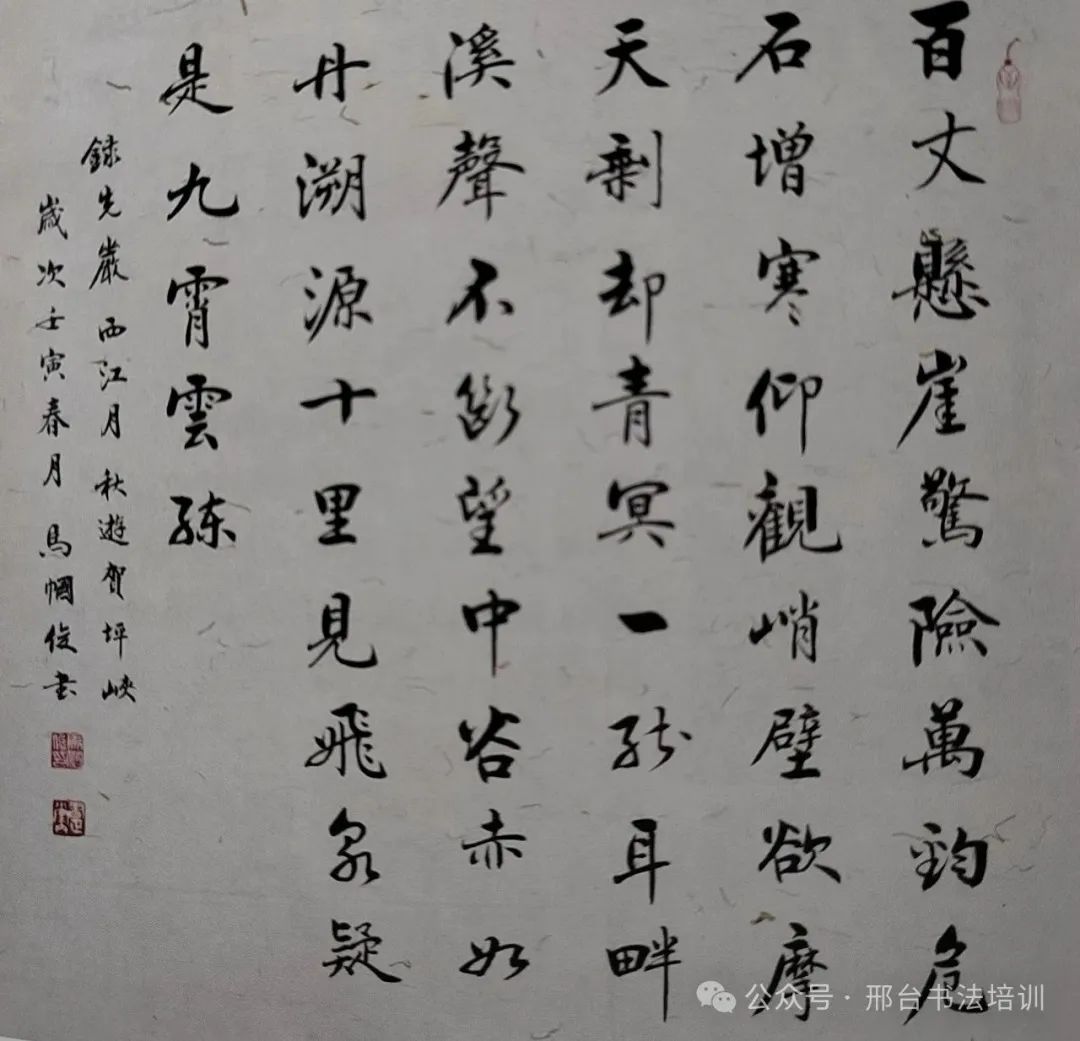 百丈懸崖驚險萬鈞危
石增寒仰觀峭壁欲摩
天剩却青冥一线耳畔
溪聲不断望中谷赤如
丹溯源十里見飛泉疑
是九霄雲練
録先嚴西江月秋遊賀坪峽
歲次壬寅春月馬幗俊书
公众号·邢台书法培训